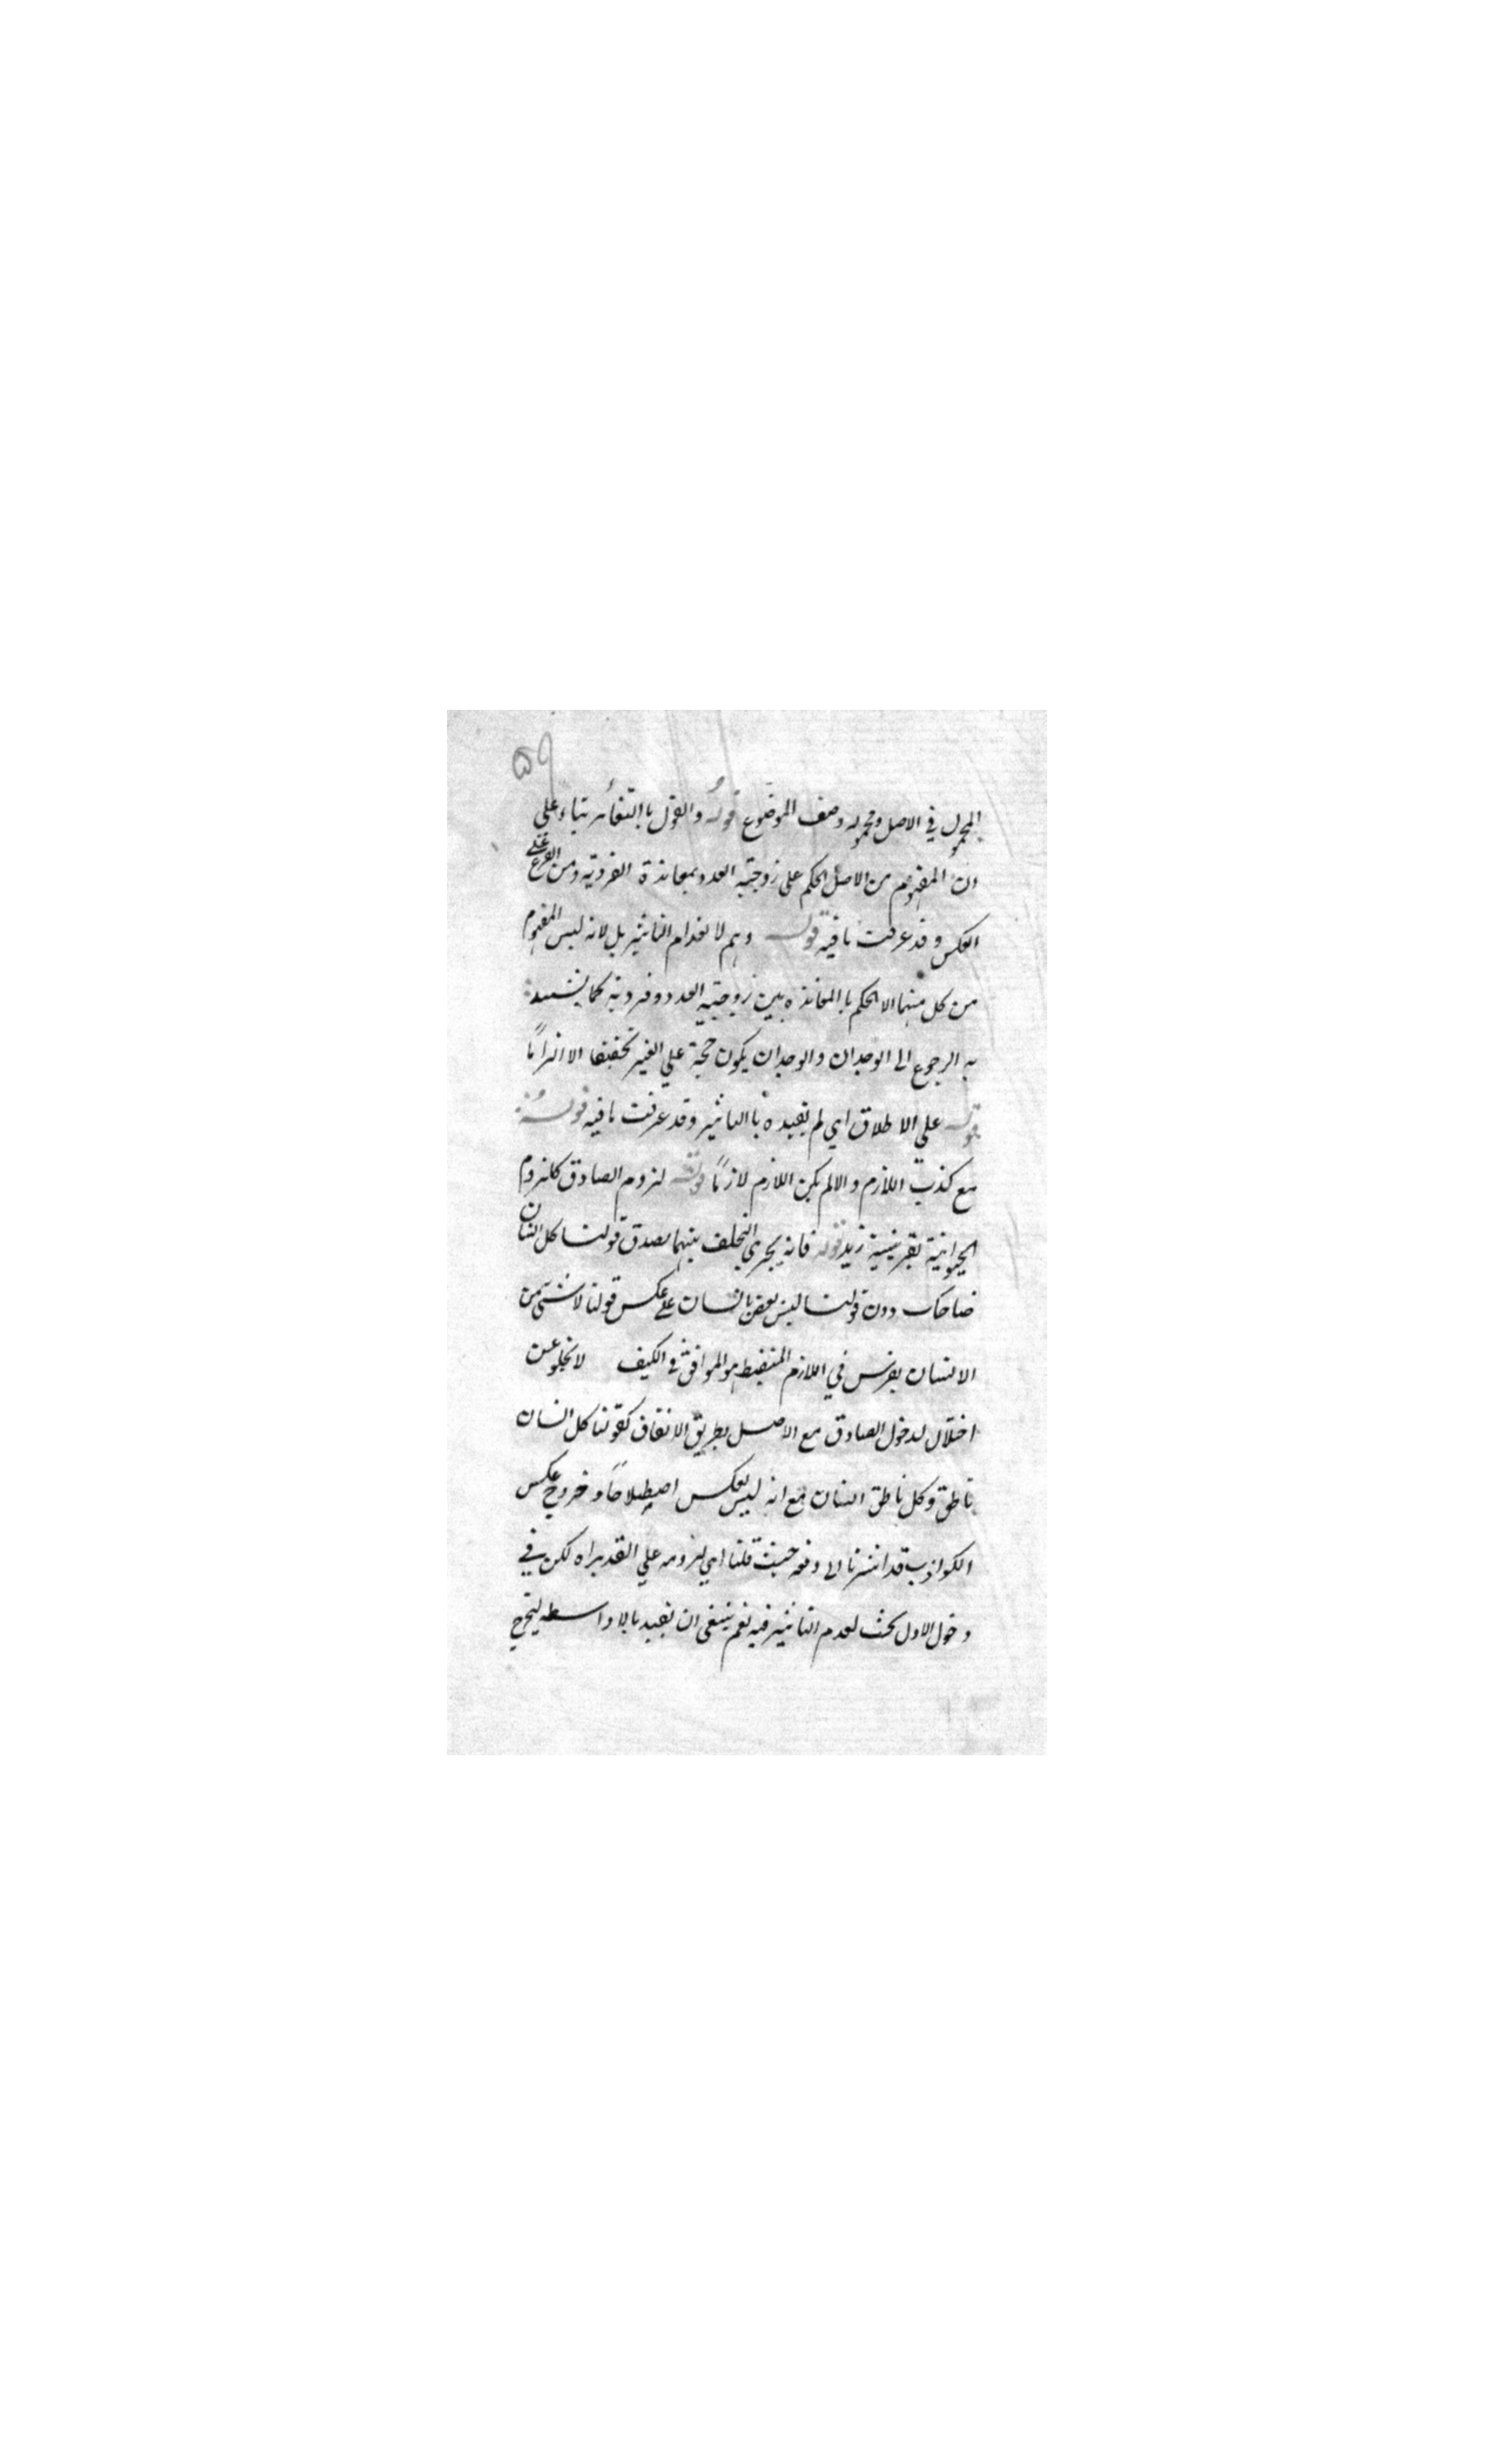 ٥٩
المحمول في الاصل ومحموله وصف الموضوع قوله والقول بالتغائر بناء على
ان المفهوم من الاصل الحكم على زوجية العدد بمعاندة الفردية ومن الفرع على
العكس وقد عرفت ما فيه قوله وهم لا لعدام التاثير بل لانه ليس المفهوم
من كل منهما الا الحكم با المعاندة بين زوجية العدد وفردية كما يشهد
به الرجوع الى الوجدان والوجدان يكون حجة على الغير تحقيقا لا الزاما
قوله على الاطلاق اي لم يقيده با التاثير وقد عرفت ما فيه قوله
مع كذب اللازم والا لم يكن اللازم لازما قوله لزوم الصادق كلزوم
الحيوانية بفرسية زيد قوله فانه يجري التخلف بينهما بصدق قولنا كل انسان
ضاحك دون قولنا ليس بعض انسان على عكس قولنا لا شئ من
الانسان بفرس في اللازم المنضبط هو الموافق في الكيف لا يخلو عن
اختلال لدخول الصادق مع الاصل بطريق الاتفاق كقولنا كل انسان
ناطق وكل ناطق انسان مع انه ليس بعكس اصطلاحا وخروج عكس
الكواذب قد اشرنا الى دفعه حيث قلنا اي لزومه على التقدير اه لكن في
دخول الاول بحث لعدم التاثير فيه نعم ينبغي ان يقيد بالا واسطه ليخرج